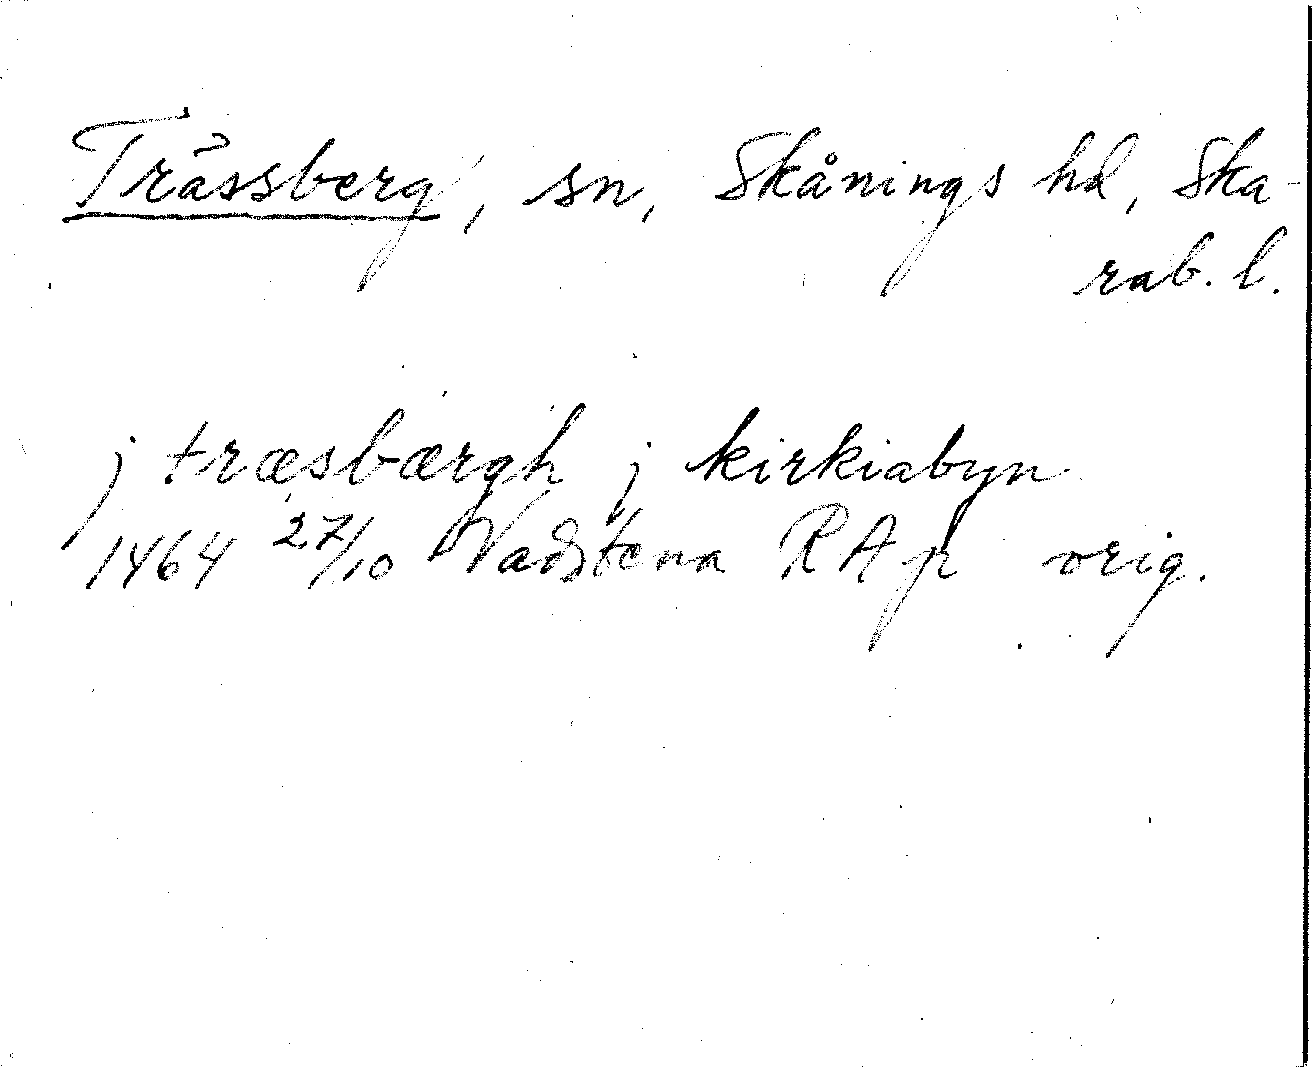 Trässberg, sn, Skånings hd, Ska-
rab. l.
j træsbærgh j kirkiabyn
1464 27/10 Vadstena RAp orig.